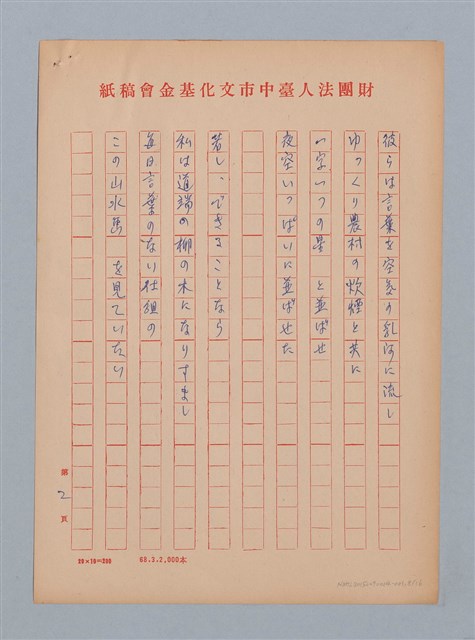 財團法人臺中市文化基金會稿紙
彼らは言葉を空気の乳河に流し
ゆっくり農村の炊煙と共に
一字一つの星 と並ばせ
夜空いっぱいに並ばせた
若し、できることなら
私は道端の柳の木になりすまし
毎日言葉のない仕組の
この山水画 を見ていたい
第2頁
20×10=200
88.3.2,000本